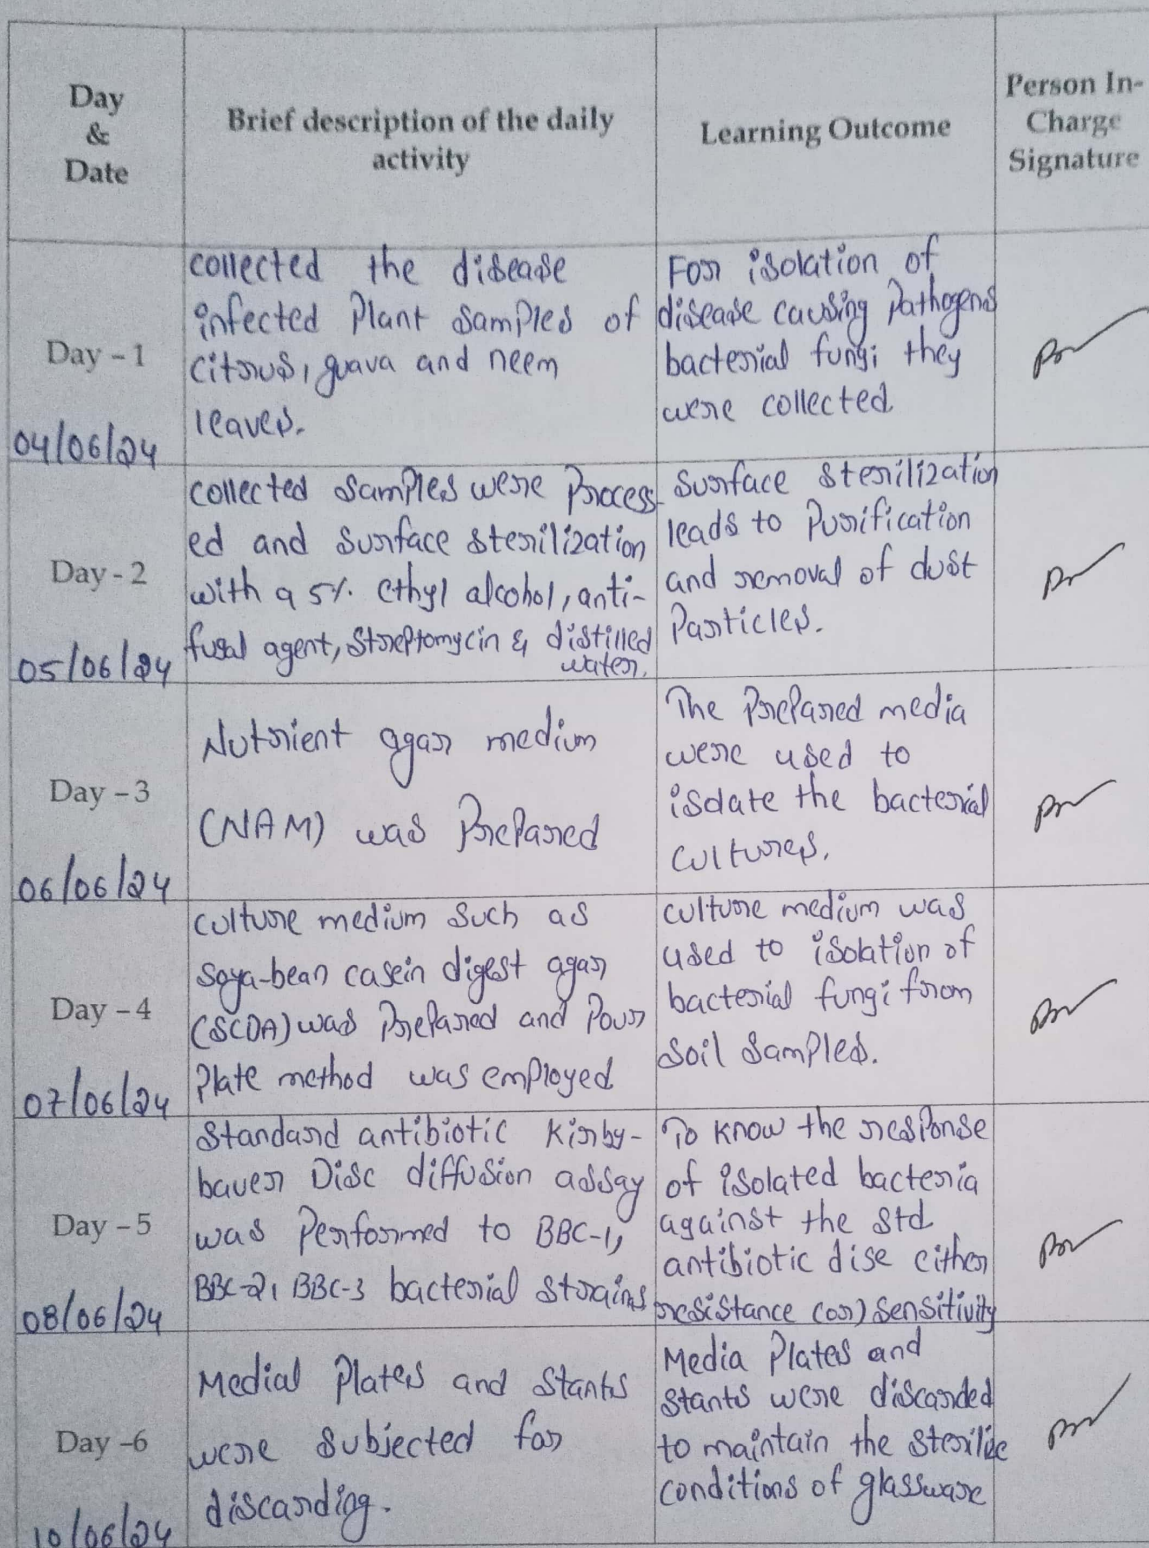 Day
&
Date
Brief description of the daily
activity
Learning Outcome
Person In-
Charge
Signature
Day - 1
04/06/24
collected the disease
infected Plant samples of
citrus, guava and neem
leaves.
For isolation of
disease causing Pathogens
bacterial fungi they
were collected.
Day - 2
05/06/24
collected samples were Process-
ed and surface sterilization
with a 5%. ethyl alcohol, anti-
fugal agent, Streptomycin & distilled
water.
Surface sterilization
leads to Purification
and removal of dust
Particles.
Day - 3
06/06/24
Nutrient agar medium
(NAM) was Prepared
The Prepared media
were used to
isolate the bacterial
cultures.
Day - 4
07/06/24
culture medium such as
soya-bean casein digest agar
(SCDA) was Prepared and Pour
Plate method was employed
culture medium was
used to isolation of
bacterial fungi from
soil samples.
Day - 5
08/06/24
Standard antibiotic Kirby-
bauer Disc diffusion assay
was Performed to BBC-1,
BBC-2, BBC-3 bacterial strains
To know the response
of isolated bacteria
against the std.
antibiotic dise either
resistance (or) sensitivity
Day -6
10/06/24
Medial Plates and Stants
were subjected for
discarding.
Media Plates and
Stants were discarded
to maintain the sterilie
conditions of glassware